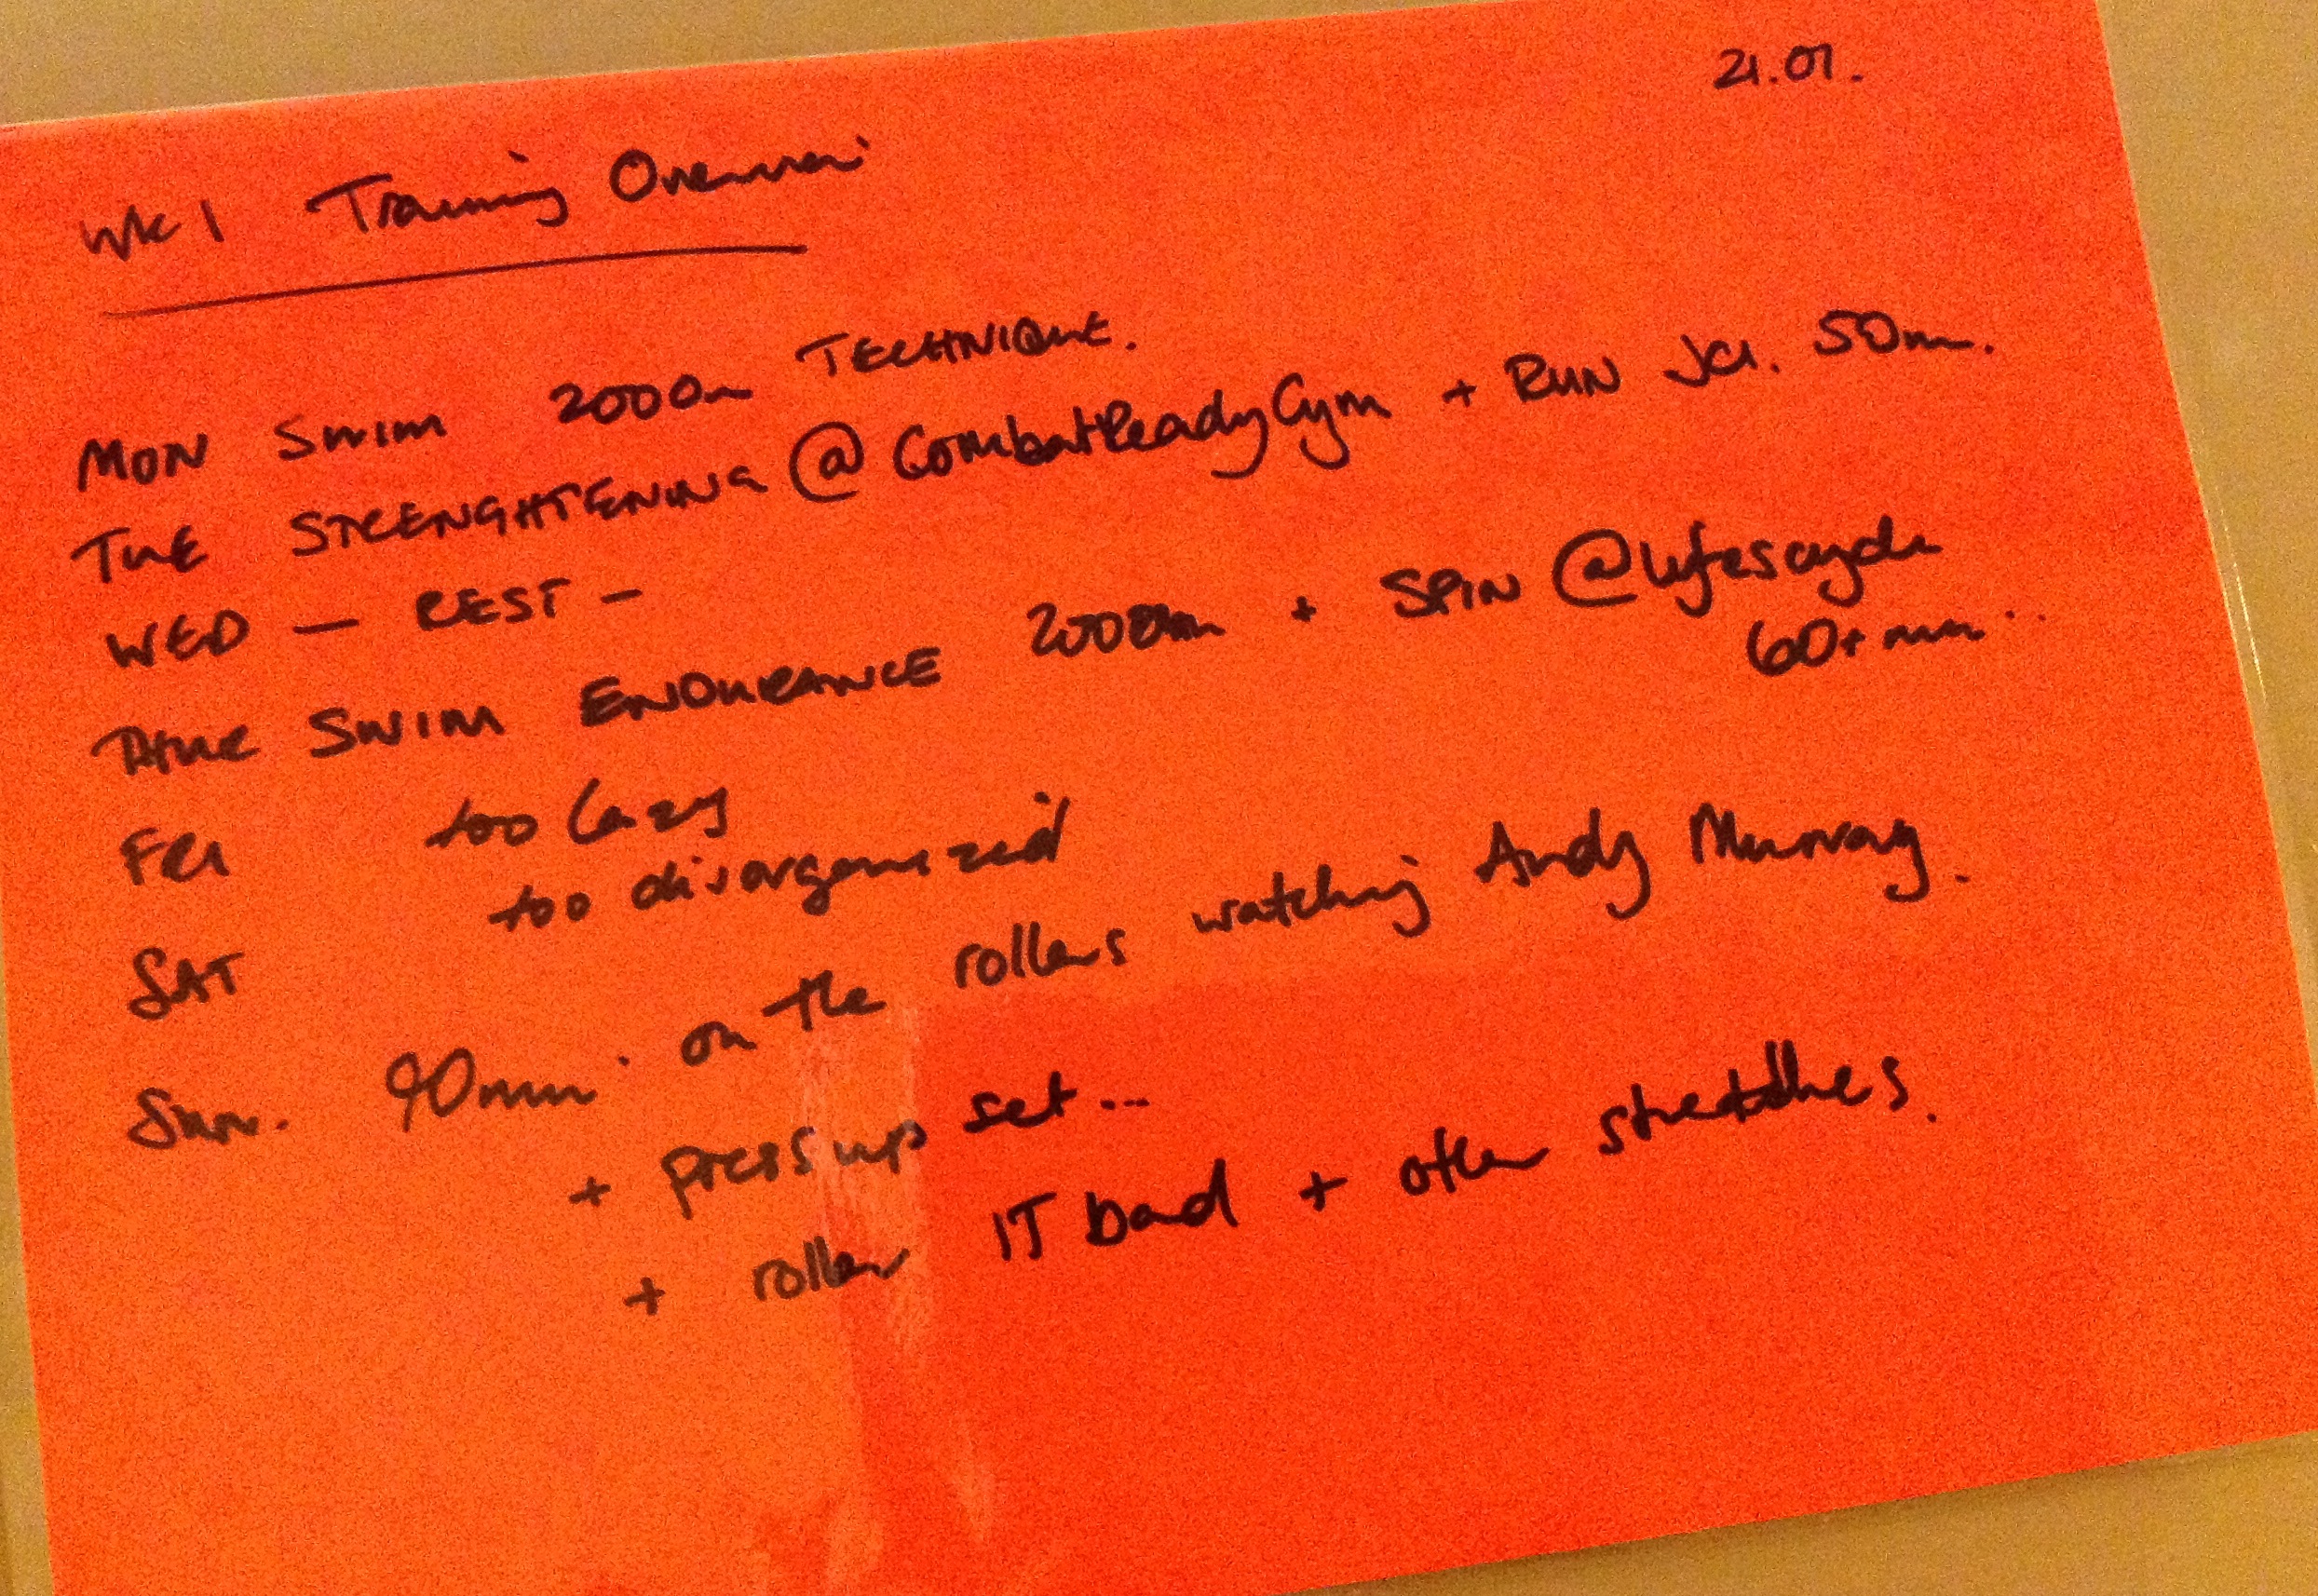 21.01.
Wk 1 Training Overview
MON SWIM 2000m TECHNIQUE.
TUE STRENGHTENING @CombatReadyGym + RUN 50m.
WED - REST -
THUR SWIM ENDURANCE 2000m + SPIN @lifescycle
60+ min..
FRI too lazy
SAT too disorganized
Sun. 90min. on the rollers watching Andy Murray.
+ press up set...
+ roller IT band + other stretches.